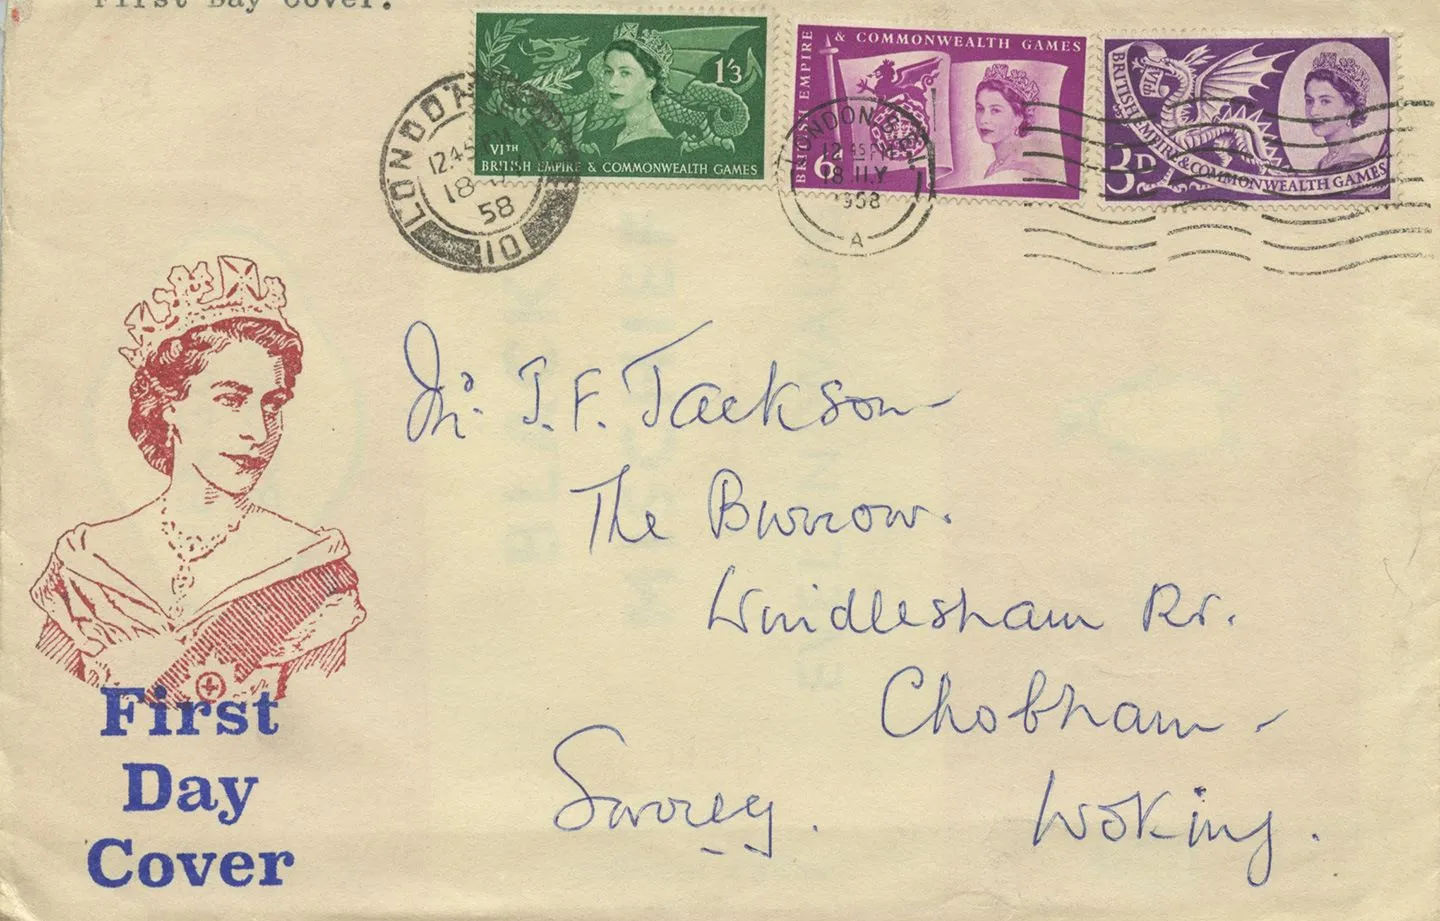 First Day Cover.
1/3
VITH
BRITISH EMPIRE & COMMONWEALTH GAMES
BRITISH EMPIRE & COMMONWEALTH GAMES
6D
BRITISH EMPIRE & COMMONWEALTH GAMES
3D
LONDON
12.45 PM
18
58
101
LONDON
12 45 PM
18 JLY
1958
A
Mr. J. F. Jackson
The Burrow.
Windlesham Rd.
Chobham -
Surrey. Woking.
First
Day
Cover